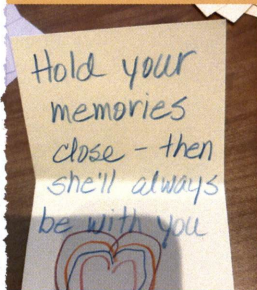 Hold your
memories
close - then
she'll always
be with you